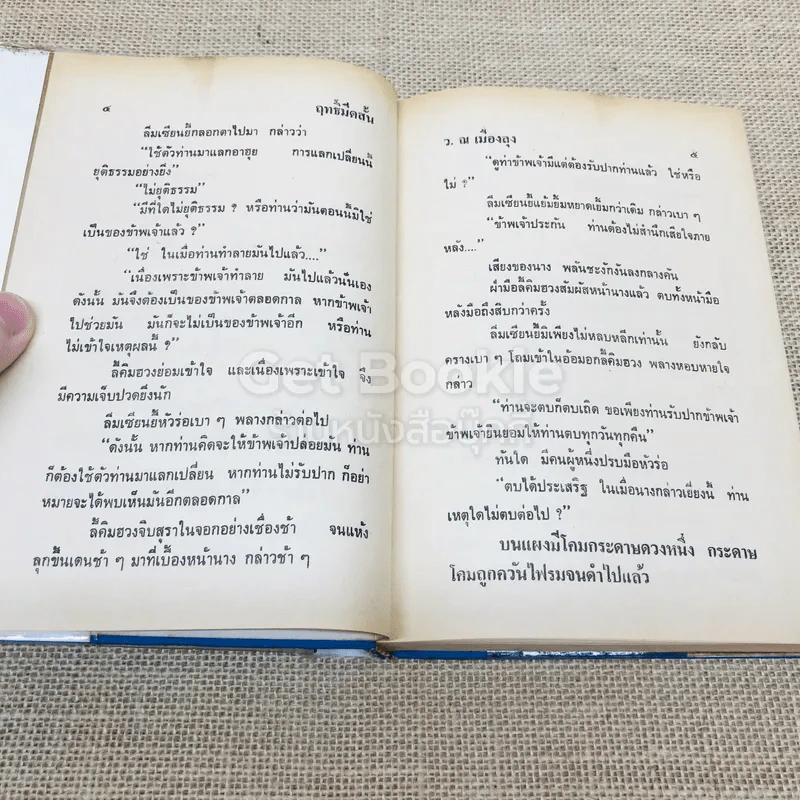 ๔ ฤทธิ์มีดสั้น
ลิ้มเซียนยี้กลอกตาไปมา กล่าวว่า
“ใช้ตัวท่านมาแลกอาฮุย การแลกเปลี่ยนนี้
ยุติธรรมอย่างยิ่ง”
“ไม่ยุติธรรม”
“มีที่ใดไม่ยุติธรรม ? หรือท่านว่ามันตอนนี้มิใช่
เป็นของข้าพเจ้าแล้ว ?”
“ใช่ ในเมื่อท่านทำลายมันไปแล้ว....”
“เนื่องเพราะข้าพเจ้าทำลาย มันไปแล้วนั่นเอง
ดังนั้น มันจึงต้องเป็นของข้าพเจ้าตลอดกาล หากข้าพเจ้า
ไปช่วยมัน มันก็จะไม่เป็นของข้าพเจ้าอีก หรือท่าน
ไม่เข้าใจเหตุผลนี้ ?”
ลี้คิมฮวงยอมเข้าใจ และเนื่องเพราะเข้าใจ จึง
มีความเจ็บปวดยิ่งนัก
ลิ้มเซียนยี้หัวร่อเบา ๆ พลางกล่าวต่อไป
“ดังนั้น หากท่านคิดจะให้ข้าพเจ้าปล่อยมัน ท่าน
ก็ต้องใช้ตัวท่านมาแลกเปลี่ยน หากท่านไม่รับปาก ก็อย่า
หมายจะได้พบเห็นมันอีกตลอดกาล”
ลี้คิมฮวงจิบสุราในจอกอย่างเชื่องช้า จนแห้ง
ลุกขึ้นเดินช้า ๆ มาที่เบื้องหน้านาง กล่าวช้า ๆ
ว. ณ เมืองลุง ๕
“ดูท่าข้าพเจ้ามีแต่ต้องรับปากท่านแล้ว ใช่หรือ
ไม่ ?”
ลิ้มเซียนยี้แย้มยิ้มหยาดเยิ้มกว่าเดิม กล่าวเบา ๆ
“ข้าพเจ้าประกัน ท่านต้องไม่สำนึกเสียใจภาย
หลัง....”
เสียงของนาง พลันชะงักงันลงกลางคัน
ฝ่ามือลี้คิมฮวงสัมผัสหน้านางแล้ว ตบทั้งหน้ามือ
หลังมือถึงสิบกว่าครั้ง
ลิ้มเซียนยี้มิเพียงไม่หลบหลีกเท่านั้น ยังกลับ
ครางเบา ๆ โถมเข้าในอ้อมอกลี้คิมฮวง พลางหอบหายใจ
กล่าว
“ท่านจะตบก็ตบเถิด ขอเพียงท่านรับปากข้าพเจ้า
ข้าพเจ้ายินยอมให้ท่านตบทุกวันทุกคืน”
ทันใด มีคนผู้หนึ่งปรบมือหัวร่อ
“ตบได้ประเสริฐ ในเมื่อนางกล่าวเยี่ยงนี้ ท่าน
เหตุใดไม่ตบต่อไป ?”
บนแผงมีโคมกระดาษดวงหนึ่ง กระดาษ
โคมถูกควันไฟรมจนดำไปแล้ว
Get Bookie
ร้านหนังสือบุ๊คกี้